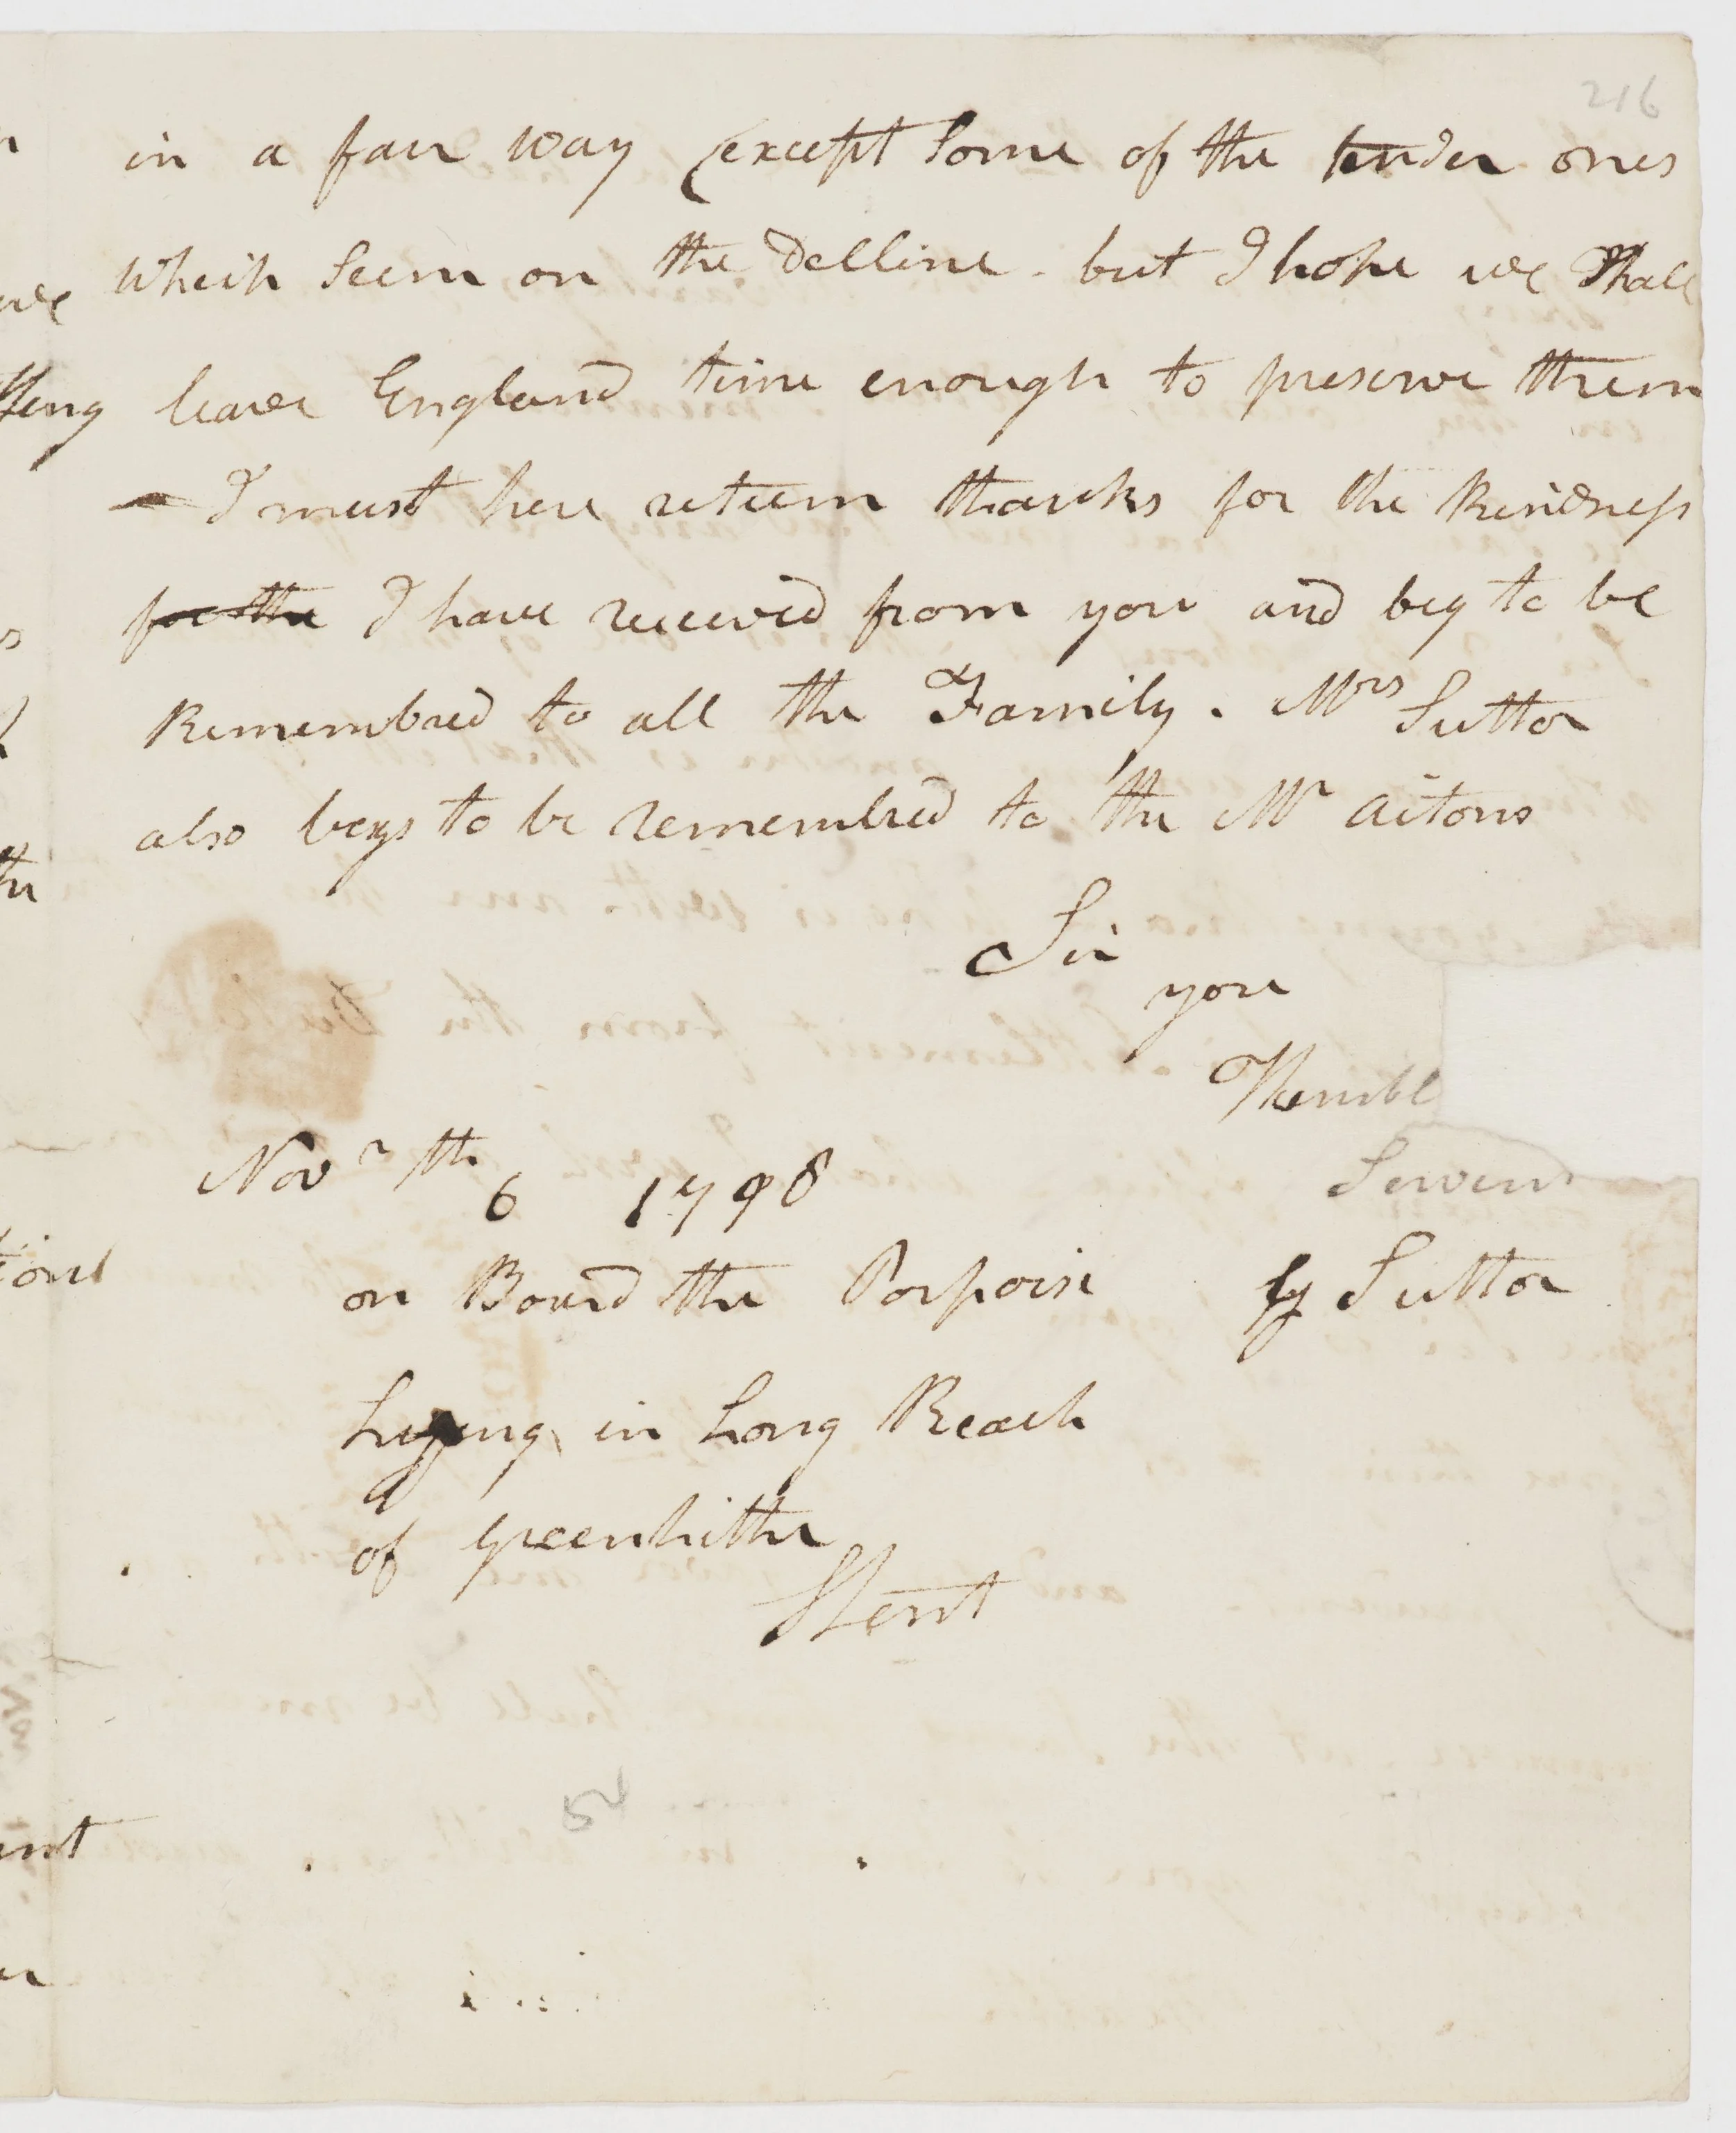 216
in a fair way except Some of the tender ones
Wheih Seem on the Delline - but I hope we Shall
leave England time enough to preserve them
- I must here return thanks for the Kindness
for the I have received from you and beg to be
Remembred to all the Family. Mrs Suttor
also begs to be remembred to the Mr Aitons
Sir
your
Humbl
Servent
G Suttor
Novr th 6 1798
on Board the Porpoise
Lying in Long Reach
of Greenhithe
Kent